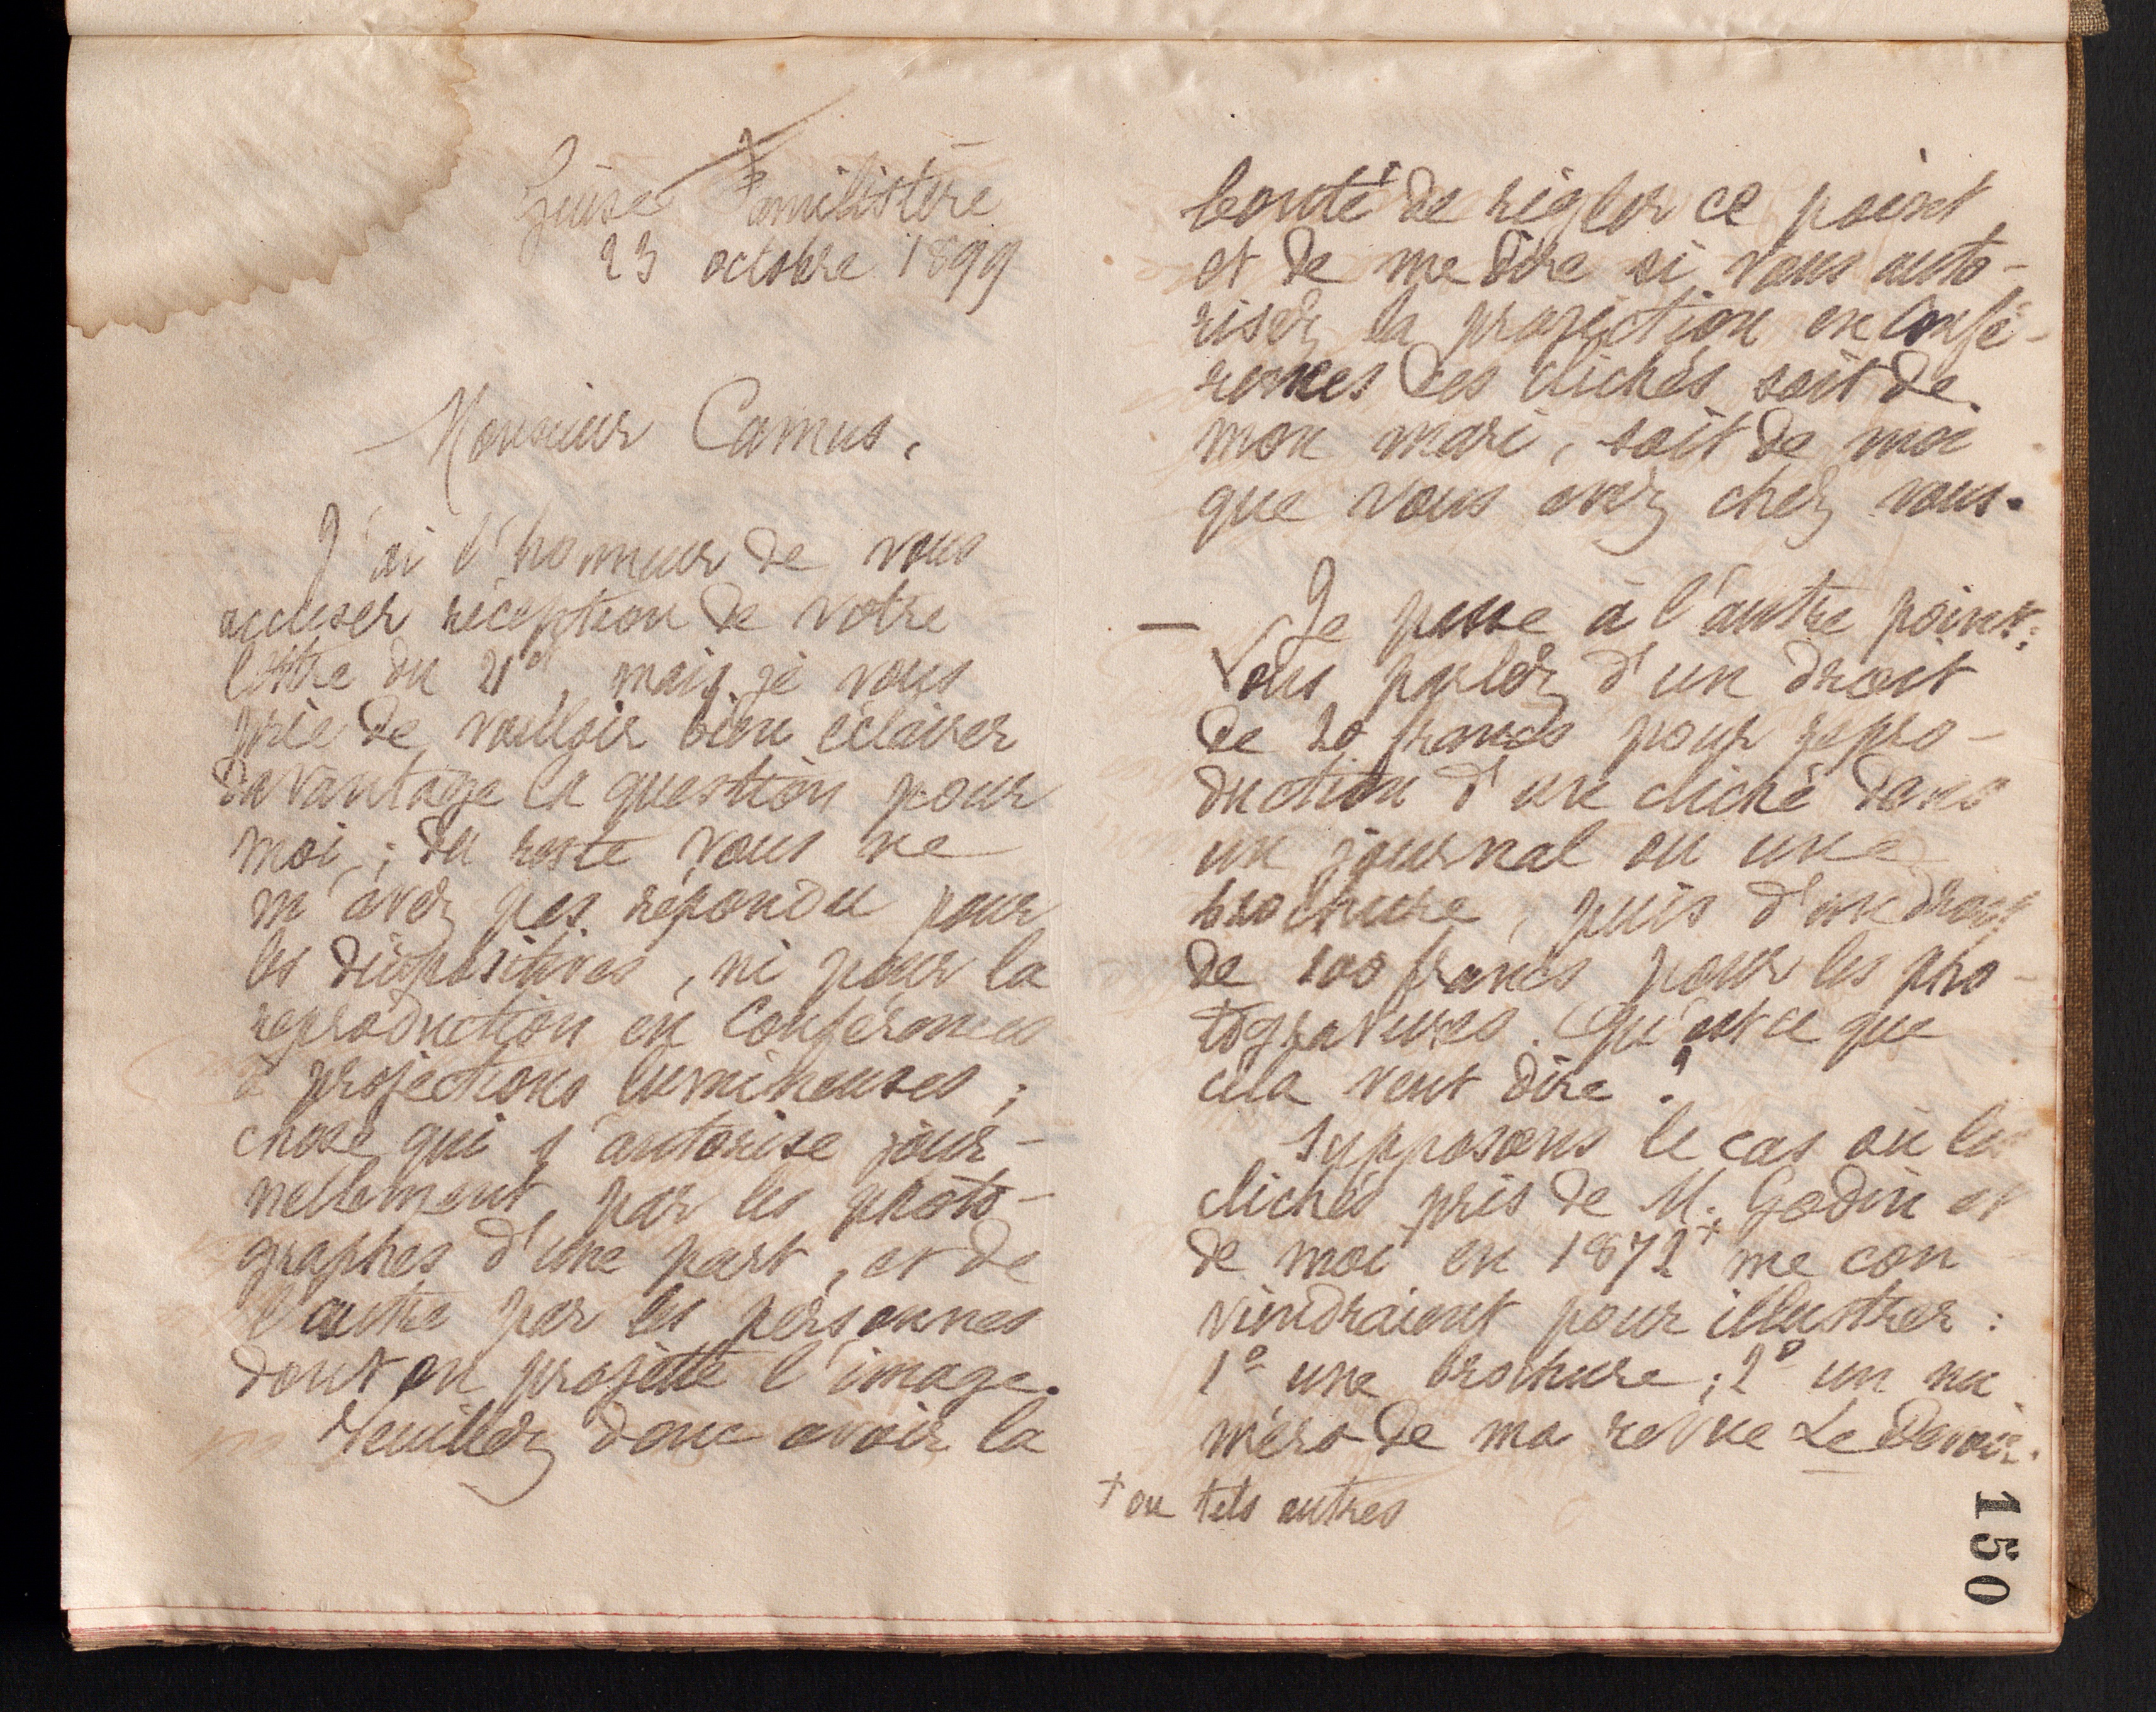 Guise Familistère
23 octobre 1899
Monsieur Camus,
J'ai l'honneur de vous
accuser réception de votre
lettre du 21 et, mais je vous
prie de vouloir bien éclairer
davantage la question pour
moi ; du reste vous ne
m'avez pas répondu pour
les diapositives, ni pour la
reproduction en Conférences
à projections lumineuses ;
chose qui s'autorise jour-
nellement, par les photo-
graphes d'une part, et de
l'autre par les personnes
dont on projette l'image.
Veuillez donc avoir la
bonté de régler ce point
et de me dire si vous auto-
risez la projection en Confé-
rences des clichés soit de
mon mari, soit de moi
que vous avez chez vous.
— Je passe à l'autre point :
Vous parlez d'un droit
de 20 francs pour repro-
duction d'un cliché dans
un journal ou une
brochure, puis d'un droit
de 100 francs pour les pho-
togravures. Qu'est ce que
cela veut dire ?
Supposons le cas où les
clichés pris de M. Godin et
de moi en 1872 + me con
viendraient pour illustrer :
1° une brochure ; 2° un nu
méro de ma revue Le Devoir.
+ ou tels autres
150